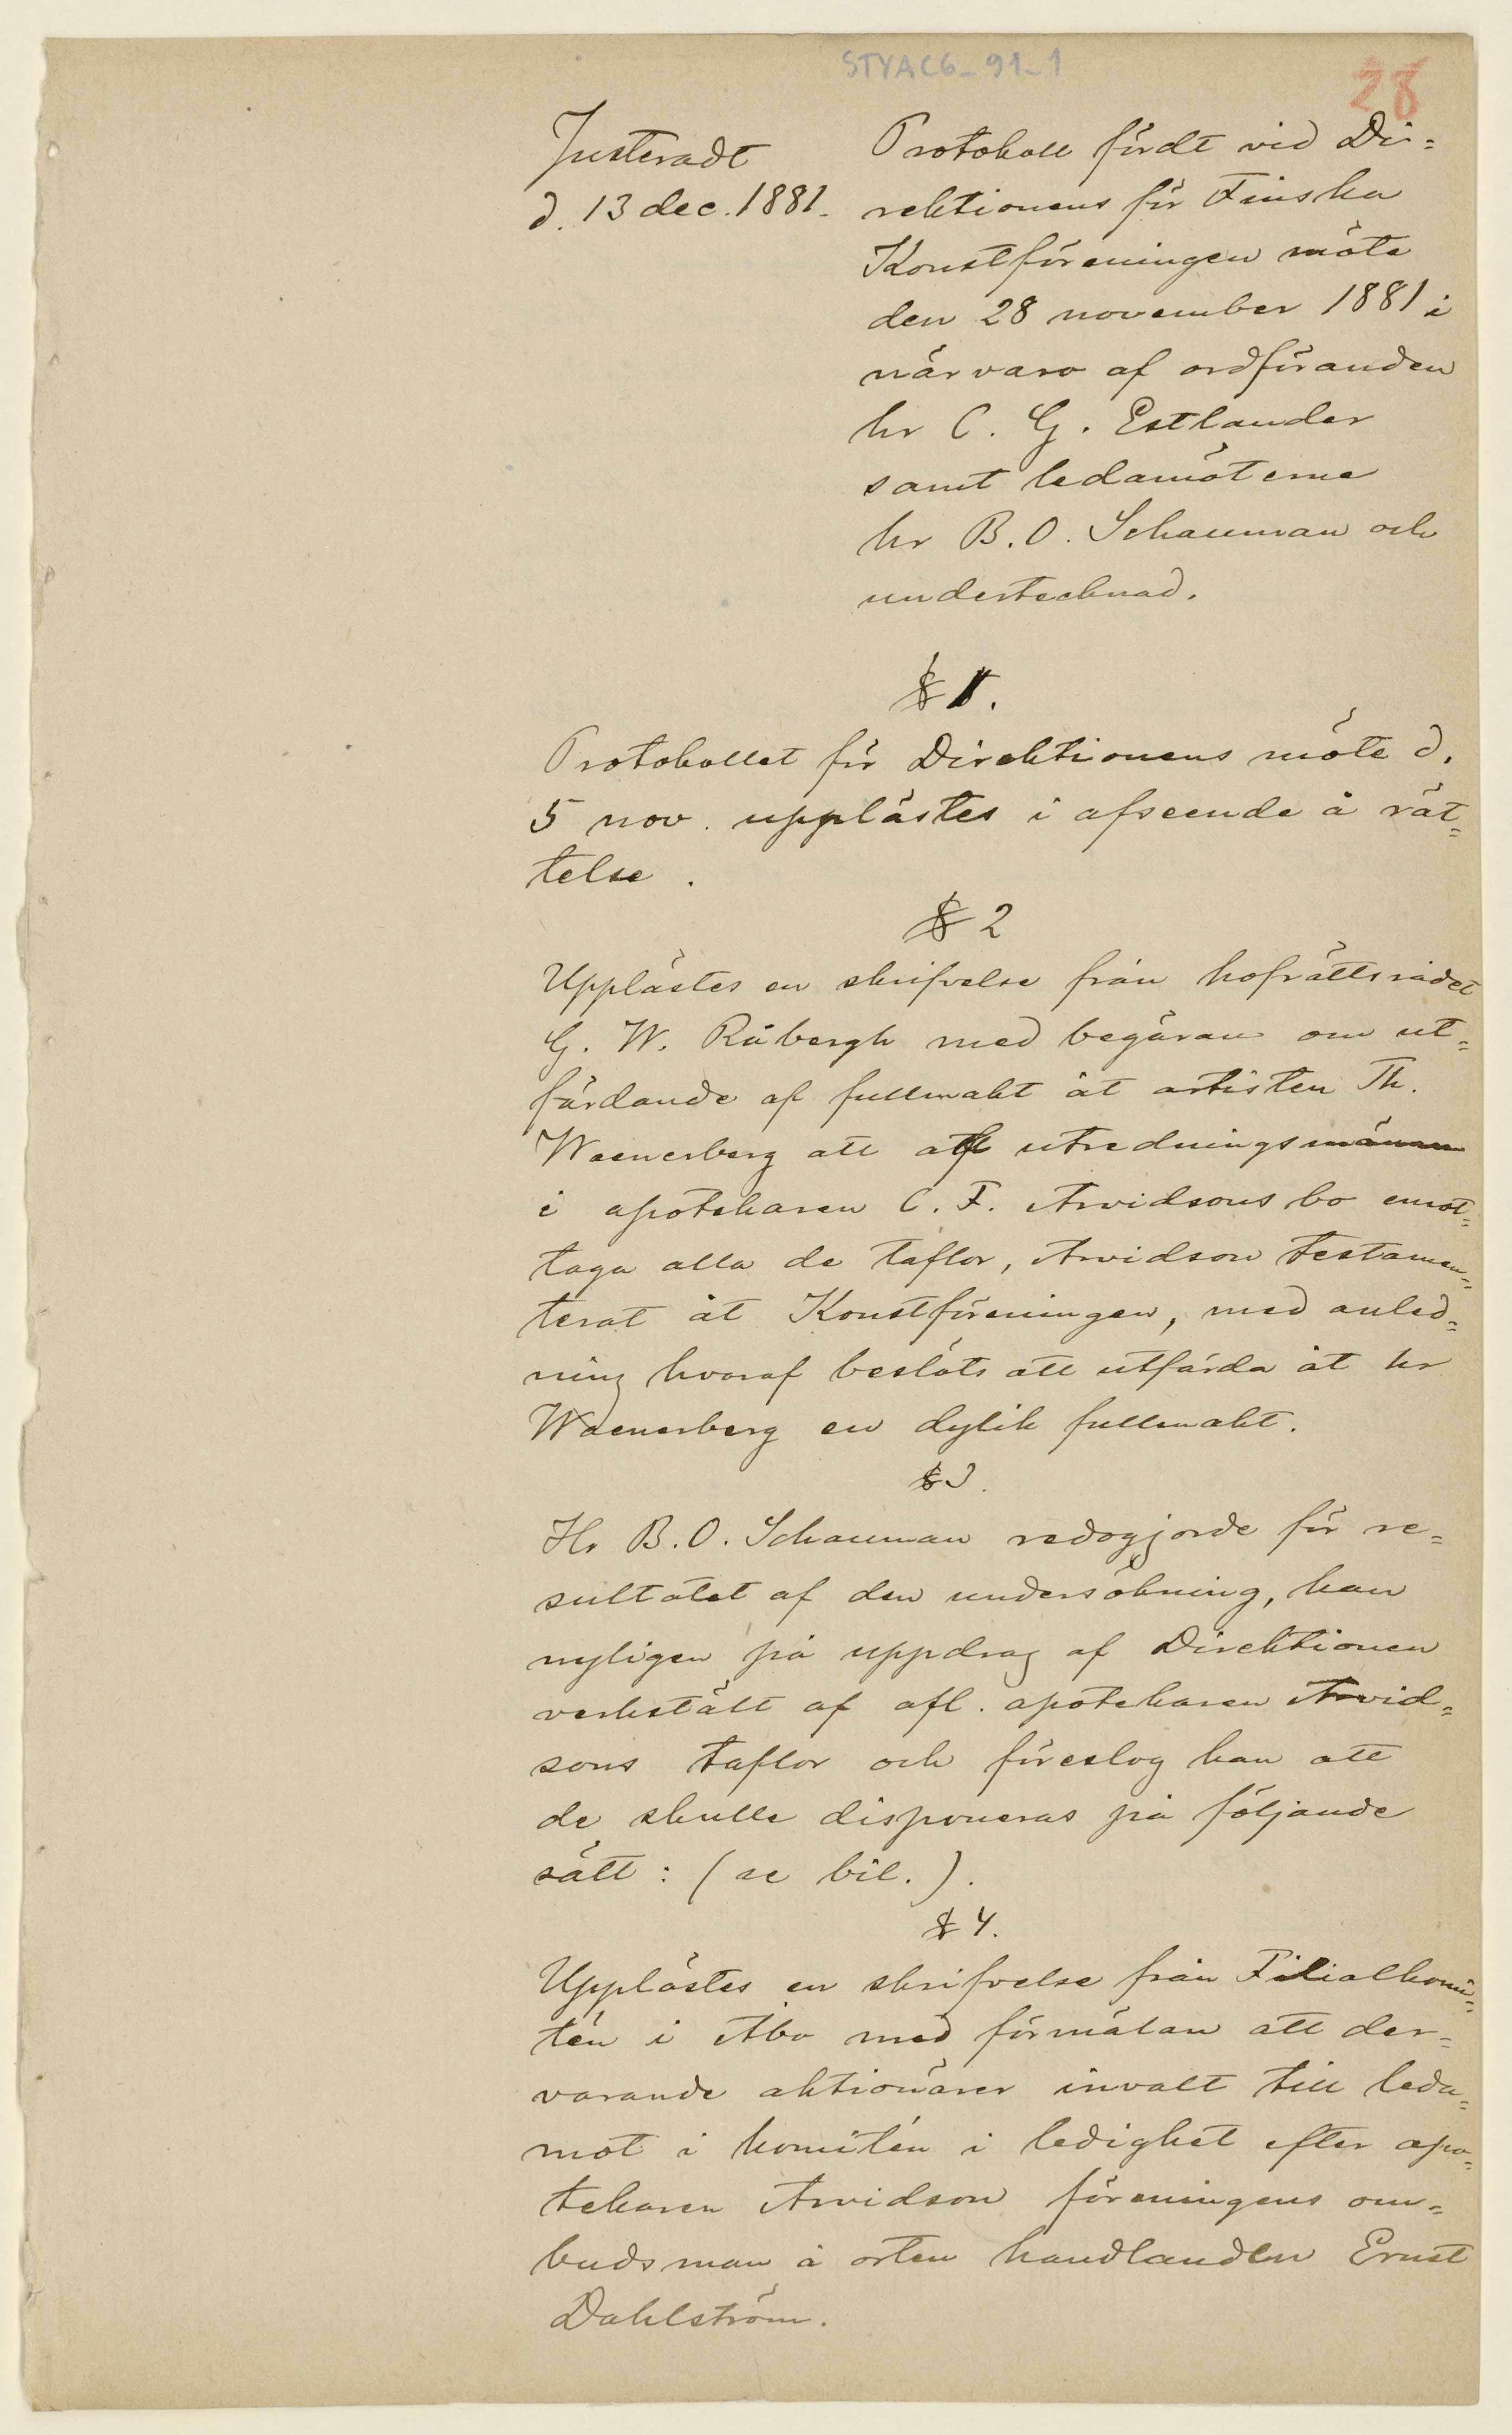 STYAC6-91-1
28
Justeradt
d. 13 dec. 1881.
Protokoll fördt vid Di-
rektionens för Finska
Konstföreningen möte
den 28 november 1881 i
närvaro af ordföranden
hr C. G. Estlander
samt ledamöterne
hr B. O. Schauman och
undertecknad.
§ 1.
Protokollet för Direktionens möte d.
5 nov. upplästes i afseende å rät-
telse.
§ 2
Upplästes en skrifvelse från hofrättsrådet
G. W. Råbergh med begäran om ut-
färdande af fullmakt åt artisten Th.
Waenerberg att af utrednings männen
i apotekaren C. F. Arvidsons bo emot-
taga alla de taflor, Arvidson testamen-
terat åt Konstföreningen, med anled-
ning hvaraf beslöts att utfärda åt hr
Waenerberg en dylik fullmakt.
§ 3.
Hr B. O. Schauman redogjorde för re-
sultatet af den undersökning, han
nyligen på uppdrag af Direktionen
verkstält af afl. apotekaren Arvid-
sons taflor och föreslog han att
de skulle disponeras på följande
sätt: (se bil.).
§ 4.
Upplästes en skrifvelse från Filialkomi-
tén i Åbo med förmälan att der-
varande aktionärer invalt till leda-
mot i komitén i ledighet efter apo-
tekaren Arvidson föreningens om-
budsman å orten handlanden Ernst
Dahlström.